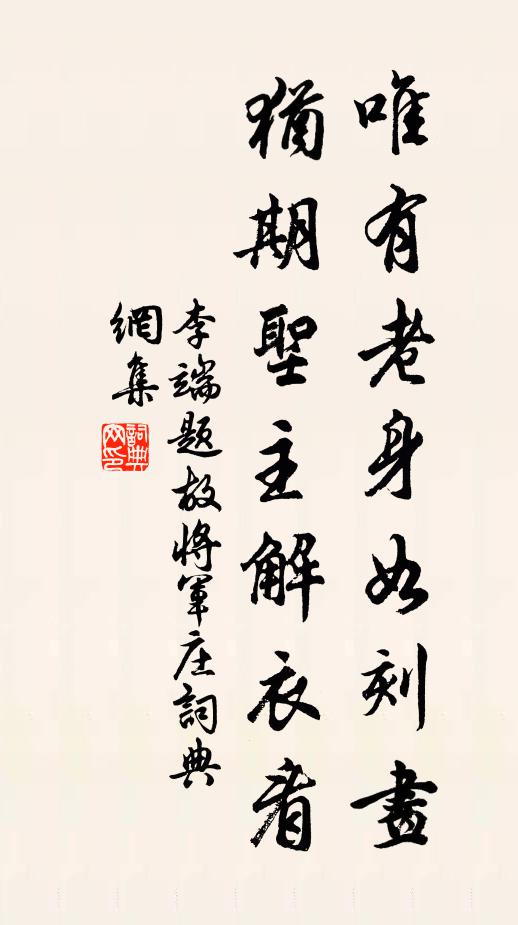 唯有老身如刻畫
猶期聖主解衣看
李端題故將軍庄詞典
網集
詞典
网印